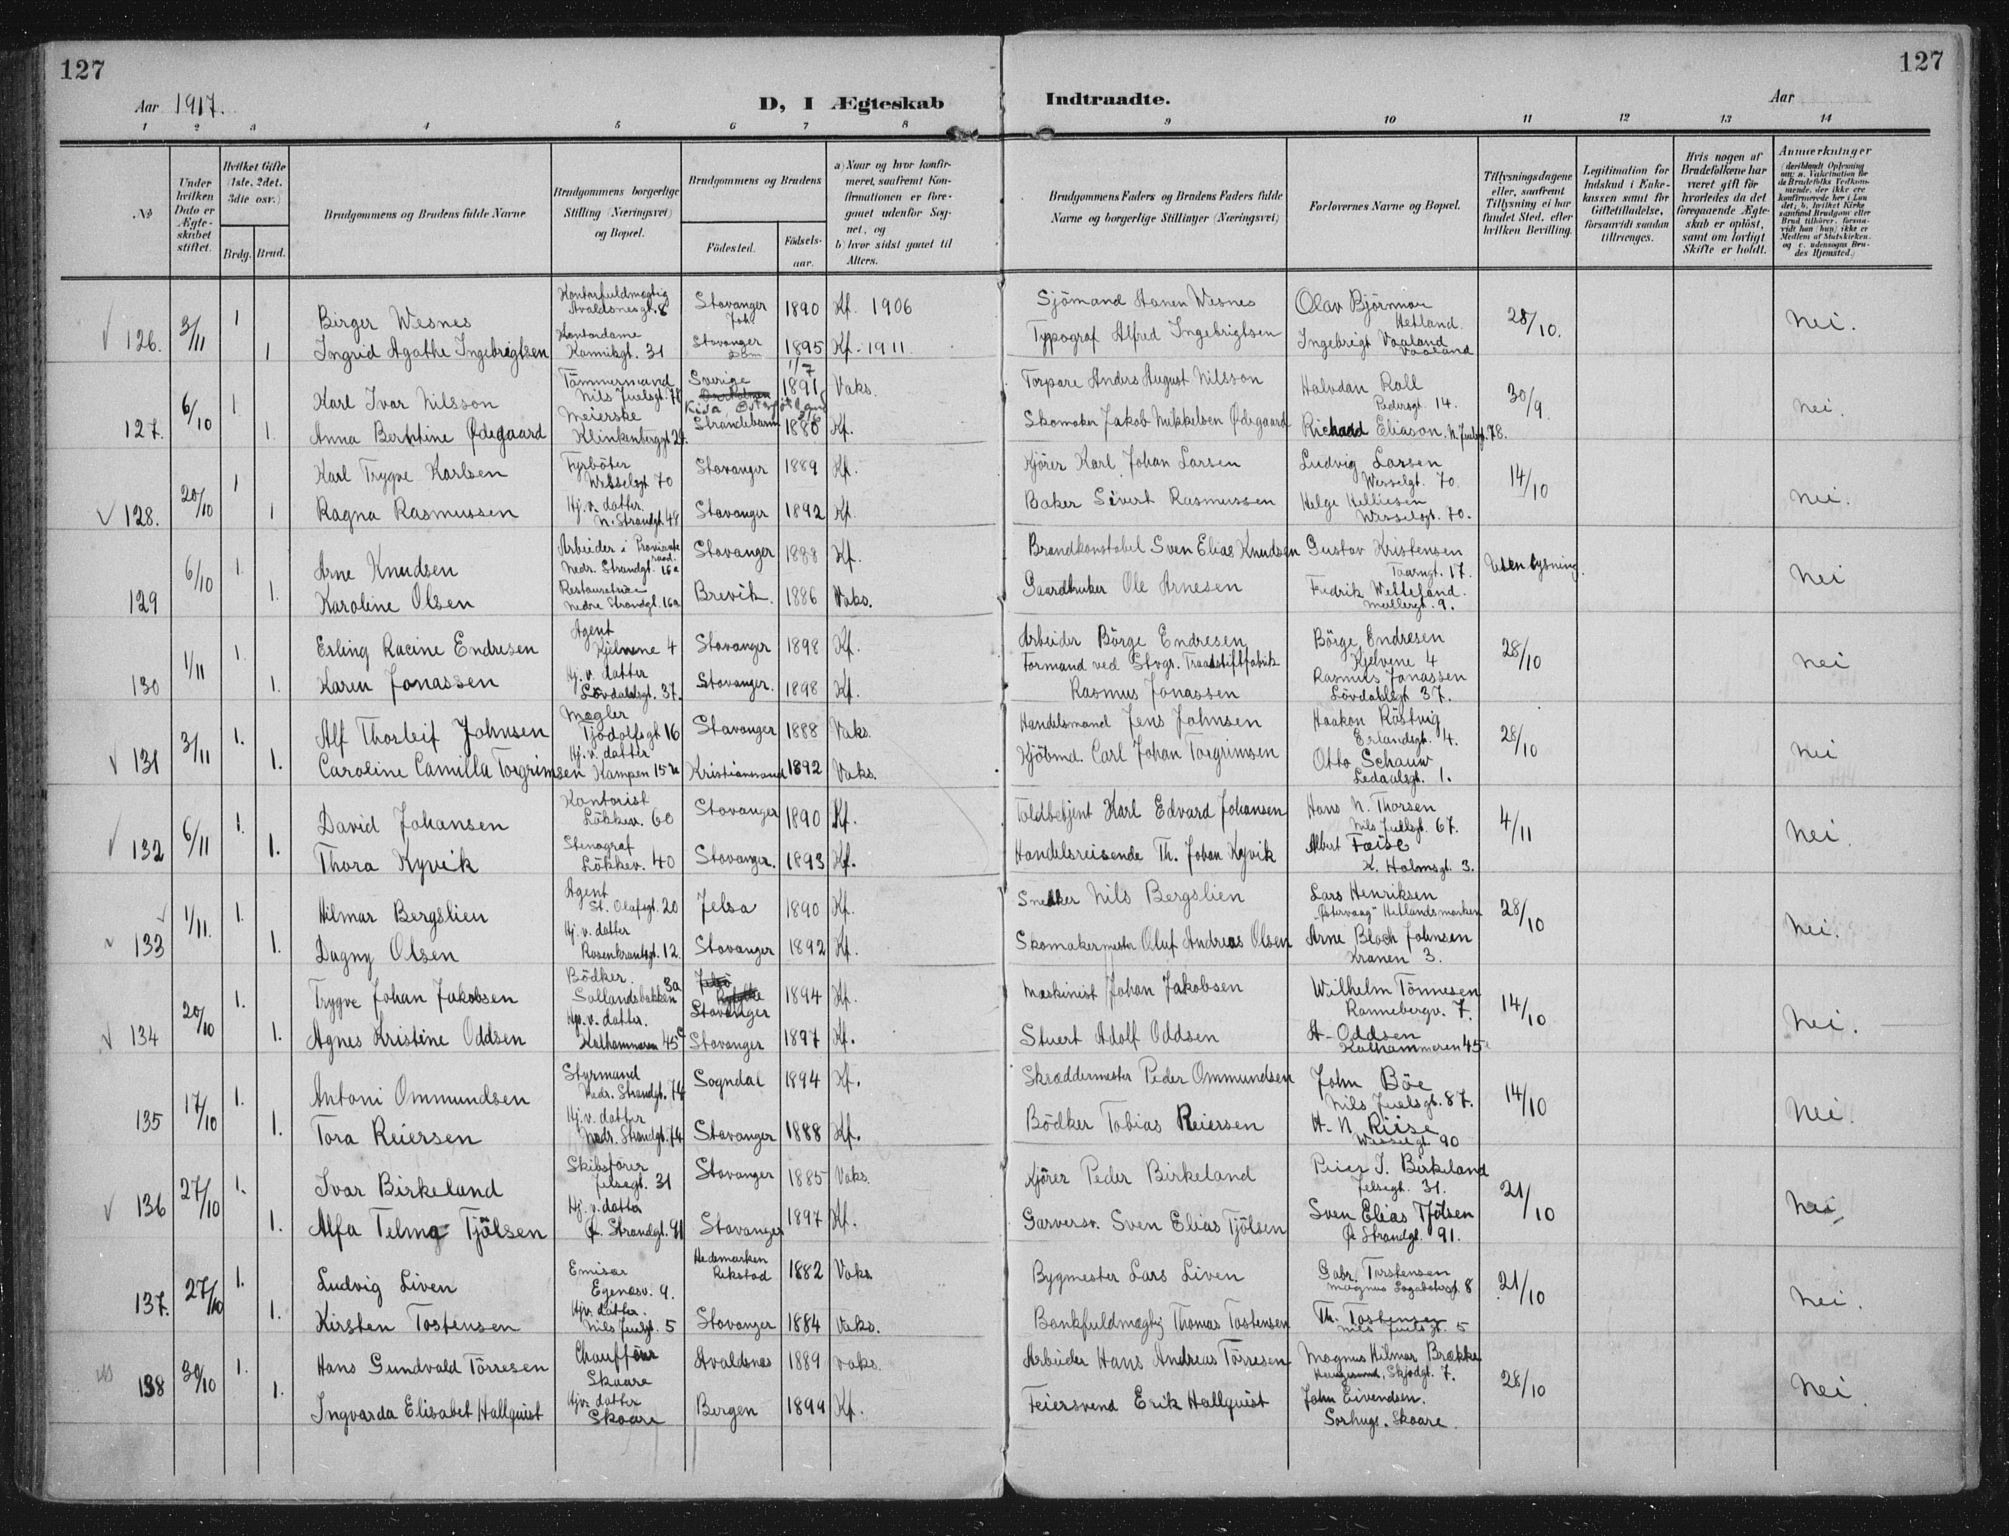 127
127
Aar 1917.
D, I Ægteskab Indtraadte.
Aar
1 2 3 4 5 6 7 8 9 10 11 12 13 14
No
Under hvilken Dato er Ægteskabet stiftet.
Hvilket Gifte (1ste, 2det, 3die osv.)
Brdg. Brud.
Brudgommens og Brudens fulde Navne
Brudgommens borgerlige Stilling (Næringsvei) og Bopæl.
Brudgommens og Brudens
Fødested.
Fødselsaar.
a) Naar og hvor konfirmeret, saafremt Konfirmationen er foregaaet udenfor Sognet, og
b) hvor sidst gaaet til Alters.
Brudgommens Faders og Brudens Faders fulde Navne og borgerlige Stillinger (Næringsvei)
Forlovernes Navne og Bopæl.
Tillysningsdagene eller, saafremt Tillysning ei har fundet Sted, efter hvilken Bevilling.
Legitimation for Indskud i Enkekassen samt for Giftetilladelse, forsaavidt saadan tiltrænges.
Hvis nogen af Brudefolkene har været gift før hvorledes da det foregaaende Ægteskab er opløst, samt om lovligt Skifte er holdt.
Anmærkninger
126. 3/11 1 Birger Wesnes Kontorfuldmægtig Avaldsnesgt. 8 Stavanger 1890 Kf. 1906 Sjömand Wesnes Olav Björnmoe Hetland. 28/10. Nei.
1 Ingrid Agathe Ingebrigtsen Kontordame Kannikgt. 31 Stavanger Dom 1895 Kf. 1911 Typograf Alfred Ingebrigtsen Ingebrigt Vaaland Vaaland
127. 6/10 1. Karl Ivar Nilsson Tömmermand Nils Juelsgt. 78 Sverige Kisa Östergötland 1/7 1891 Vaks. Torpare Anders August Nilsson Halvdan Roll Pedersgt. 14. 30/9. Nei.
1. Anna Berthine Ødegaard Meierske Klinkenberggt 29. Strandebarm 1880 Kf. Skomaker Jakob Mikkelsen Ødegaard Richard Eliason. N. Juelsgt. 78.
128. 20/10 1 Karl Trygve Karlsen Fyrböter Wesselsgt 70 Stavanger 1889 Kf. Kjörer Karl Johan Larsen Ludvig Larsen Wesselgt. 70. 14/10 Nei.
1 Ragna Rasmussen Hj. v. datter. N. Strandgt. 48 Stavanger 1892 Kf. Baker Sivert Rasmussen Helge Helliesen Wesselsgt. 70.
129 6/10 1. Arne Knudsen Arbeider i Nedr. Strandgt. 16a Stavanger 1888 Kf. Brandkonstabel Sven Elias Knudsen Gustav Kristensen Taarngt. 17. Uten lysning. Nei
1. Karoline Olsen Nedre Strandgt. 16a Brevik. 1886 Vaks. Gaardbruker Ole Arnesen Fredrik Wetteland. Møllergt. 9.
130 1/11 1. Erling Racine Endresen Agent Kjelvene 4 Stavanger 1898 Kf. Arbeider Börge Endresen Börge Endresen Kjelvene 4 28/10 Nei
1. Karen Jonassen Hj. v. datter Lövdahlsgt. 37. Stavanger. 1898 Kf. Formand ved Stvgr. Traadstiftfabrik Rasmus Jonassen Rasmus Jonassen Lövdahlsgt 37.
131 3/11 1. Alf Thorleif Johnsen Mægler Tjodolfsgt 16 Stavanger 1888 Vaks. Handelsmand Jens Johnsen Haakon Röstvig Erlandsgt. 4. 28/10 Nei
1. Caroline Camilla Torgrimsen Hj. v. datter Kampen 15 a Kristianssand 1892 Vaks. Kjöbmd. Carl Johan Torgrimsen Otto Schauw Ledaalsgt. 1.
132 6/11 1. David Johansen Kontorist Lökkev. 60 Stavanger 1890 Kf. Toldbetjent Karl Edvard Johansen Hans N. Thorsen Nils Juelsgt. 67. 4/11 Nei.
1. Thora Kyvik Stenograf Lökkev. 40 Stavanger. 1893 Kf. Handelsreisende Th. Johan Kyvik Albert K. Holmsgt. 3.
133 1/11. 1. Hilmar Bergslien Agent St. Olafsgt. 20 Jelsa 1890 Kf. Snedker Nils Bergslien Lars Henriksen "Østervaag" Hetlandsmarken 28/10 Nei.
1. Dagny Olsen Hj. v. datter Rosenkrantsgt. 12. Stavanger 1892 Kf. Skomakermester Oluf Andreas Olsen Arne Bloch Johnsen Kranen 3.
134 20/10 1. Trygve Johan Jakobsen Bödker Sollandsbakken 3a Stavanger 1894 Kf. Maskinist Johan Jakobsen Wilhelm Tönnesen Rannebergv. 7. 14/10 Nei.
1. Agnes Kristine Oddsen Hj. v. datter. Kalhammeren 45 c Stavanger 1897 Kf. Stuert Adolf Oddsen A. Oddsen Kalhammeren 45
135 17/10 1. Antoni Ommundsen Styrmand Nedr. Strandgt. 74 Sogndal 1894 Kf. Skræddermester Peder Ommundsen John Böe Nils Juelsgt. 87. 14/10 Nei.
1. Tora Reiersen Hj. v. datter Nedr. Strandgt. 74 Stavanger 1888 Kf. Bödker Tobias Reiersen H. N. Riise Wesselgt 90
136 27/10 1. Ivar Birkeland Skibsförer Jelsegt. 31 Stavanger 1885 Vaks. Kjörer Peder Birkeland Peder J. Birkeland Jelsegt. 31. 21/10 Nei
1. Alfa Telma Tjölsen Hj. v. datter Ø. Strandgt. 91 Stavanger 1897 Kf. Garversv. Sven Elias Tjölsen Sven Elias Tjölsen Ø. Strandgt. 91.
137. 27/10 1. Ludvig Liven Emisær Egenesv. 9. Hedemarken 1882 Vaks. Bygmester Lars Liven Gabr. Torstensen Magnus Lagabötersgt 8 21/10 Nei.
1. Kirsten Tostensen Hjv. datter. Nils Juelsgt. 5 Stavanger 1884 Vaks. Bankfuldmægtig Thomas Tostensen Th. Tostensen Nils Juelsgt. 5
138 30/10 1. Hans Gundvald Törresen Chauffeur Skaare Avaldsnes 1889 Vaks. Arbeider Hans Andreas Törresen Magnus Hilmar Brække Haugesund, Skjoldgt. 7. 28/10 Nei.
1. Ingvarda Elisabet Hallquist Hjv. datter Skaare Bergen 1899 Kf. Feiersvend Erik Hallquist John Eivendsen. Sørhaug. Skaare.